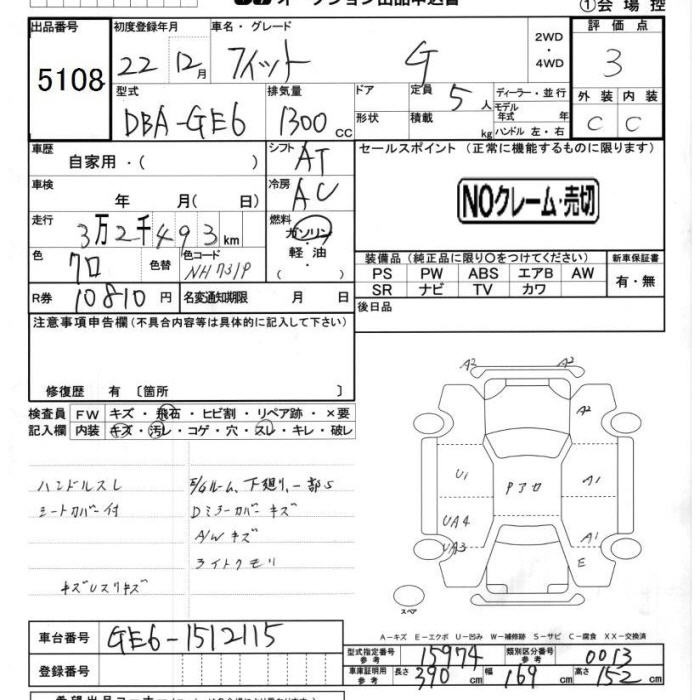 オークション出品申込書 ①会場控
出品番号 初度登録年月 車名・グレード 2WD・4WD 評価点
5108 22 12月 フィット G 3
型式 排気量 ドア 定員 5人 ディーラー・並行 外装 内装
DBA-GE6 1300cc 形状 積載 kg モデル年式 年 ハンドル 左・右 C C
車歴 自家用・( ) シフト AT セールスポイント (正常に機能するものに限ります)
車検 年 月( 日) 冷房 AC NOクレーム・売切
走行 3万2千493km 燃料 ガソリン
色 クロ 色替 色コード NH731P 軽油 ( ・ ) 装備品 (純正品に限り○をつけてください) 新車保証書
PS PW ABS エアB AW 有・無
R券 10810円 名変通知期限 月 日 SR ナビ TV カワ
注意事項申告欄(不具合内容等は具体的に記入して下さい) 後日品
修復歴 有 〔箇所 〕
検査員 FW キズ・飛石・ヒビ割・リペア跡・×要
記入欄 内装 キズ・汚レ・コゲ・穴・スレ・キレ・破レ
ハンドルスレ E/Gルーム、下廻り、一部S
シートカバー付 Dミラーカバーキズ
A/Wキズ
ライトクモリ
キズUスリキズ
A2 A2
A2
U1 Pアセ A1
UA4
UA3 A1
E
スペア
A-キズ E-エクボ U-凹み W-補修跡 S-サビ C-腐食 XX-交換済
車台番号 GE6-1512115
型式指定番号 参考 15974 類別区分番号 参考 0013
登録番号 車庫証明用 参考 長さ 390cm 幅 169cm 高さ 152cm